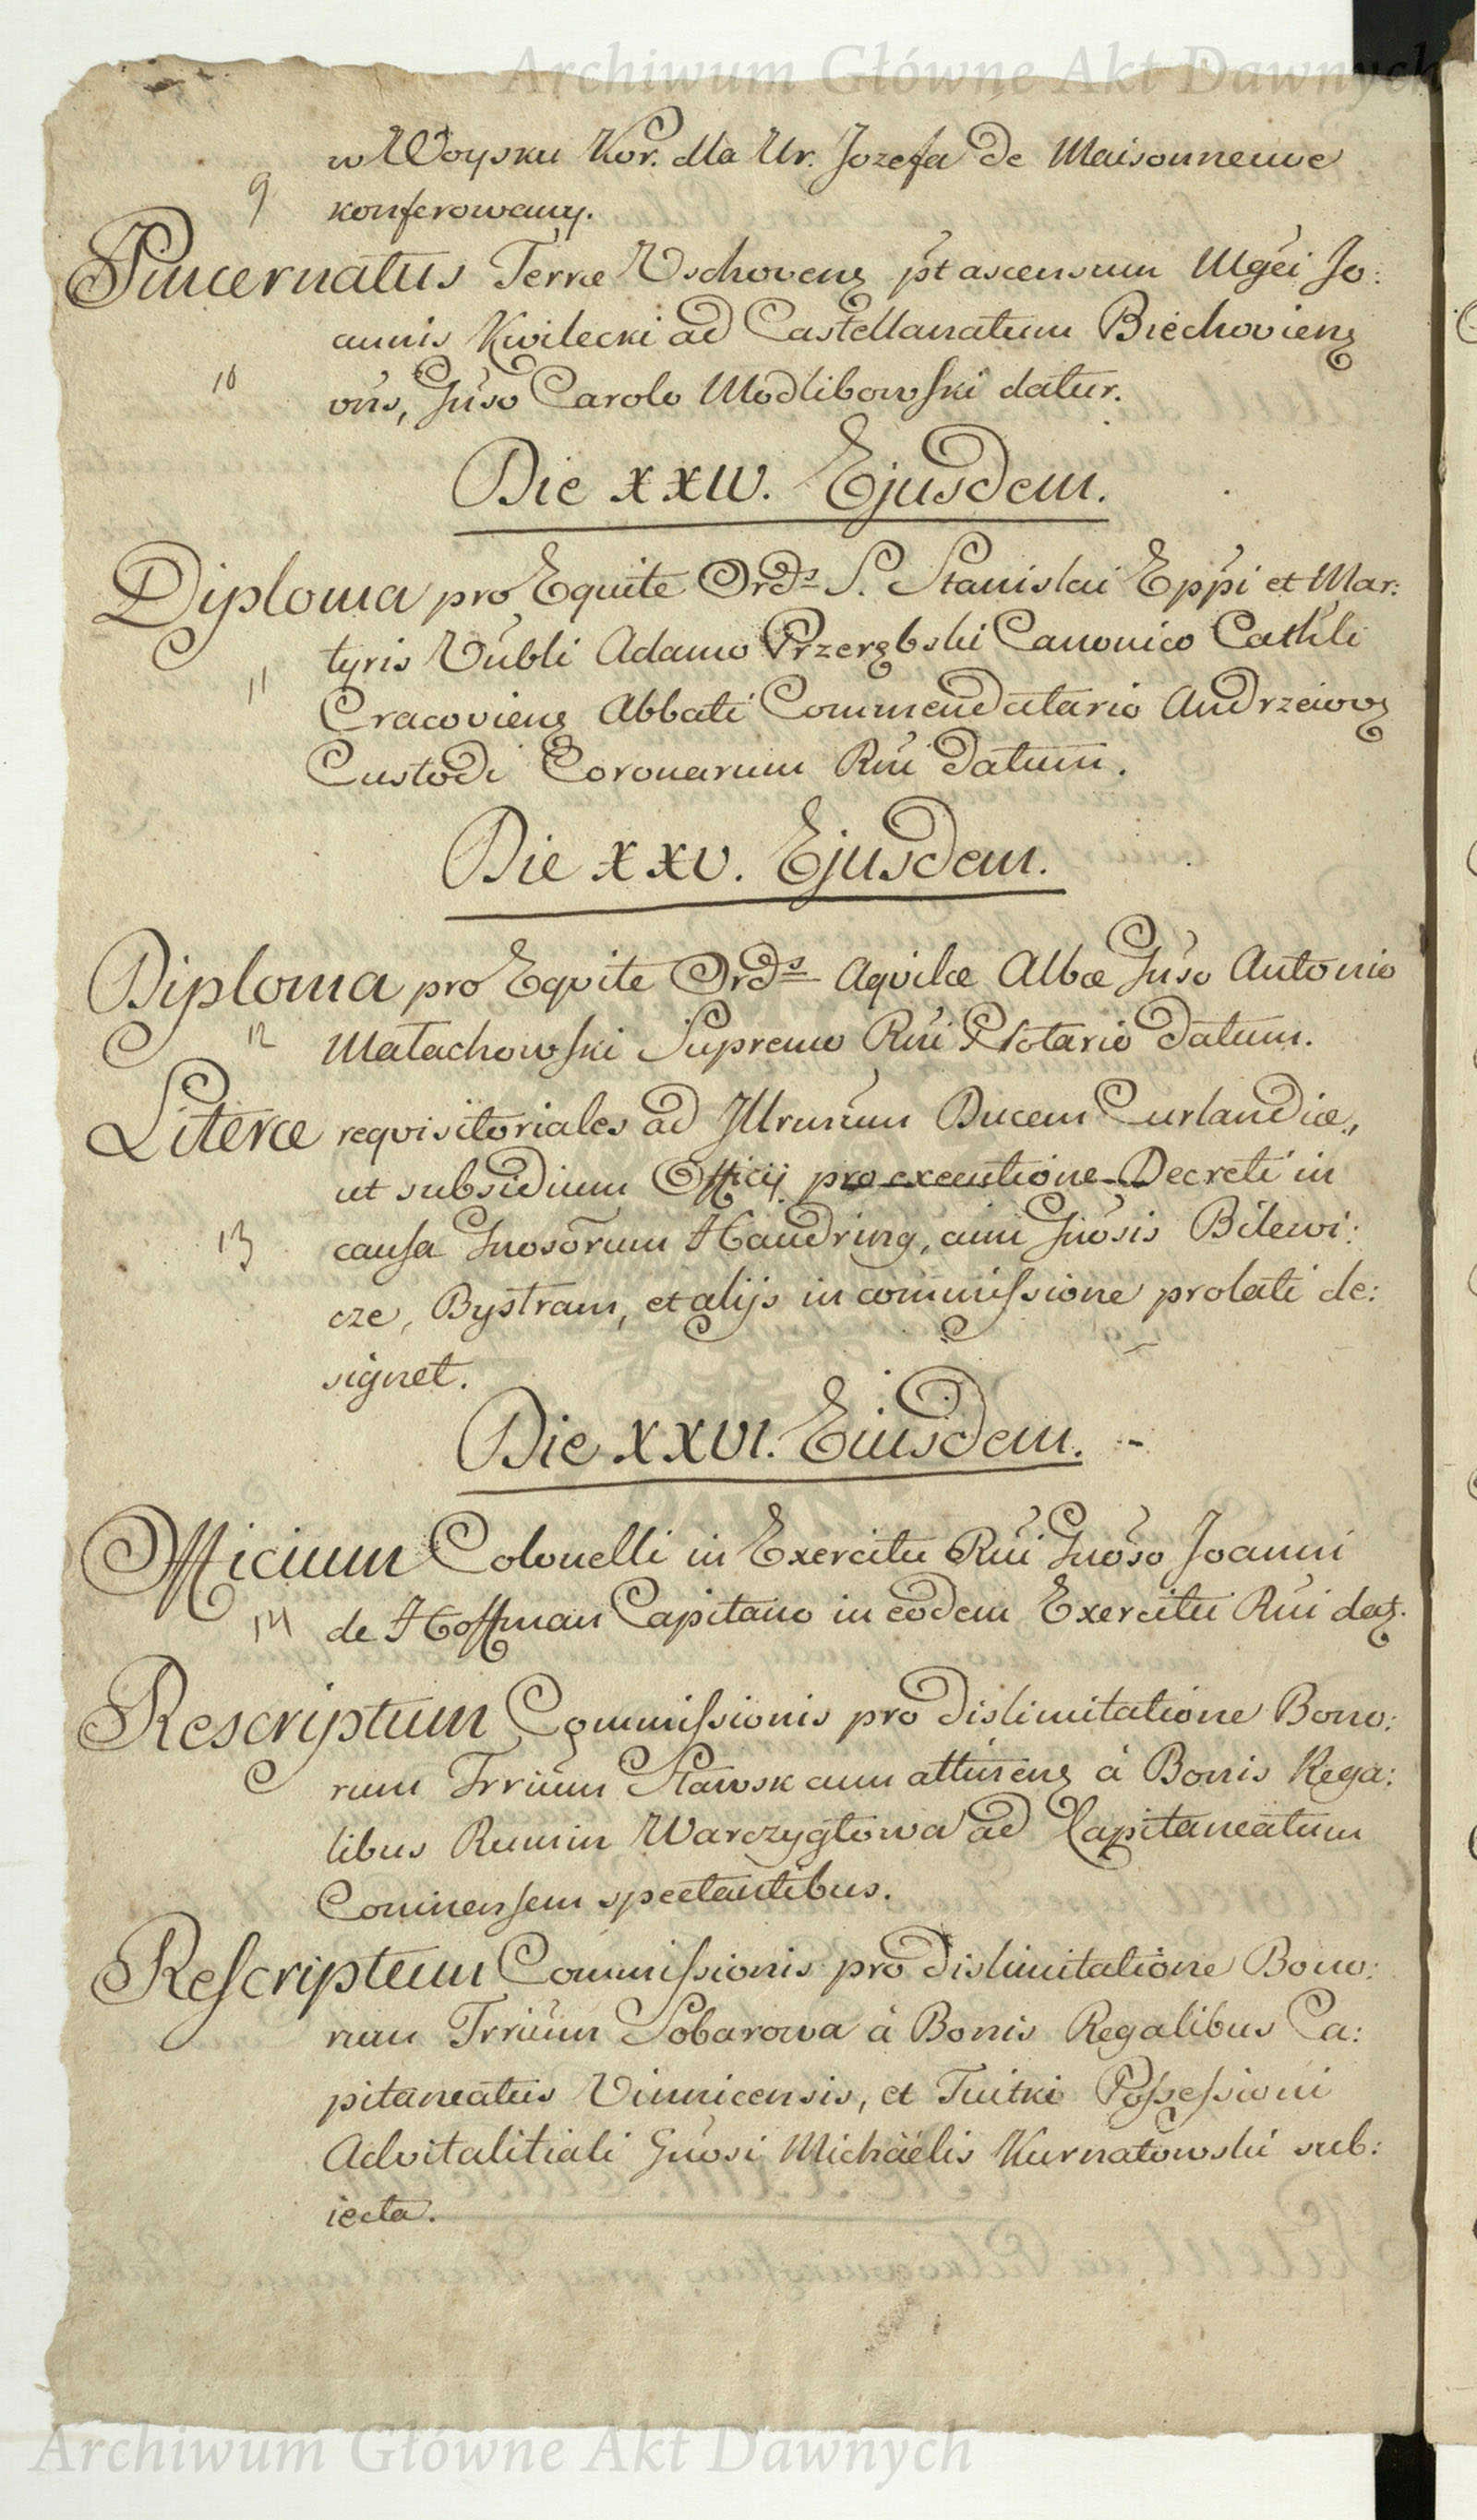 Archiwum Główne Akt Dawnych
w Woysku Kor. dla Ur. Jozefa De Maisonneuve
9 konferowany.
Pincernatus Terræ Wschovens pt ascensum Mgci Jo:
annis Kwilecki ad Castellanatum Biechoviens
10 vns, Gnso Carolo Modlibowski datur.
Die XXIV. Ejusdem.
Diploma pro Equite Ords S. Stanislai Eppi et Mar:
tyris Vubli Adamo Przerębski Canonico Cathli
11 Cracoviens Abbati Commendatario Andrzeiovs
Custodi Coronarum Rni Datum.
Die XXV. Ejusdem.
Diploma pro Equite Ords Aquilæ Albæ Gnso Antonio
12 Małachowski Supremo Rni Notario Datum.
Literæ requisitoriales ad Illrmum Ducem Curlandiæ,
ut subsidium Officij pro executione Decreti in
13 causa Gnosorum Handring, cum Gnosis Bilewi:
cze, Bystram, et alijs in commissione prolati de:
signet.
Die XXVI. Eiusdem.
Officium Colonelli in Exercitu Rni Gnoso Joanni
14 de Hoffman Capitano in eodem Exercitu Rni dat.
Rescriptum Commissionis pro Dislimitatione Bono:
rum Trrium Stawsk cum attinens à Bonis Rega:
libus Rumin Warczygłowa ad Capitaneatum
Coninensem spectantibus.
Rescriptum Commissionis pro Dislimitatione Bono:
rum Trrium Sobarowa à Bonis Regalibus Ca:
pitaneatus Vinnicensis, et Tuitki Possessioni
Advitalitiali Gnosi Michaëlis Kurnatowski sub:
iecta.
Archiwum Główne Akt Dawnych